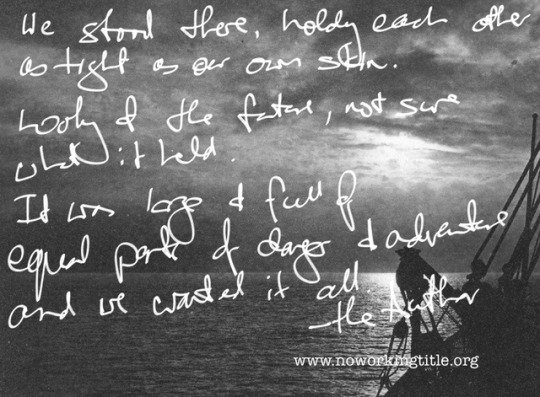 We stood there, holdy each other
as tight as our own skin.
Looking @ the future, not sure
what it held.
It was large & full of
equal parts of danger & adventure
and we wanted it all
—the Author
www.noworkingtitle.org